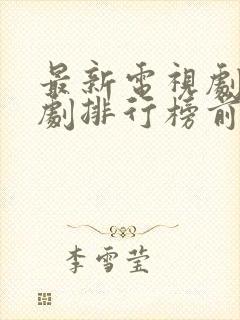 最新電視劇
劇排行榜前
李雪莹